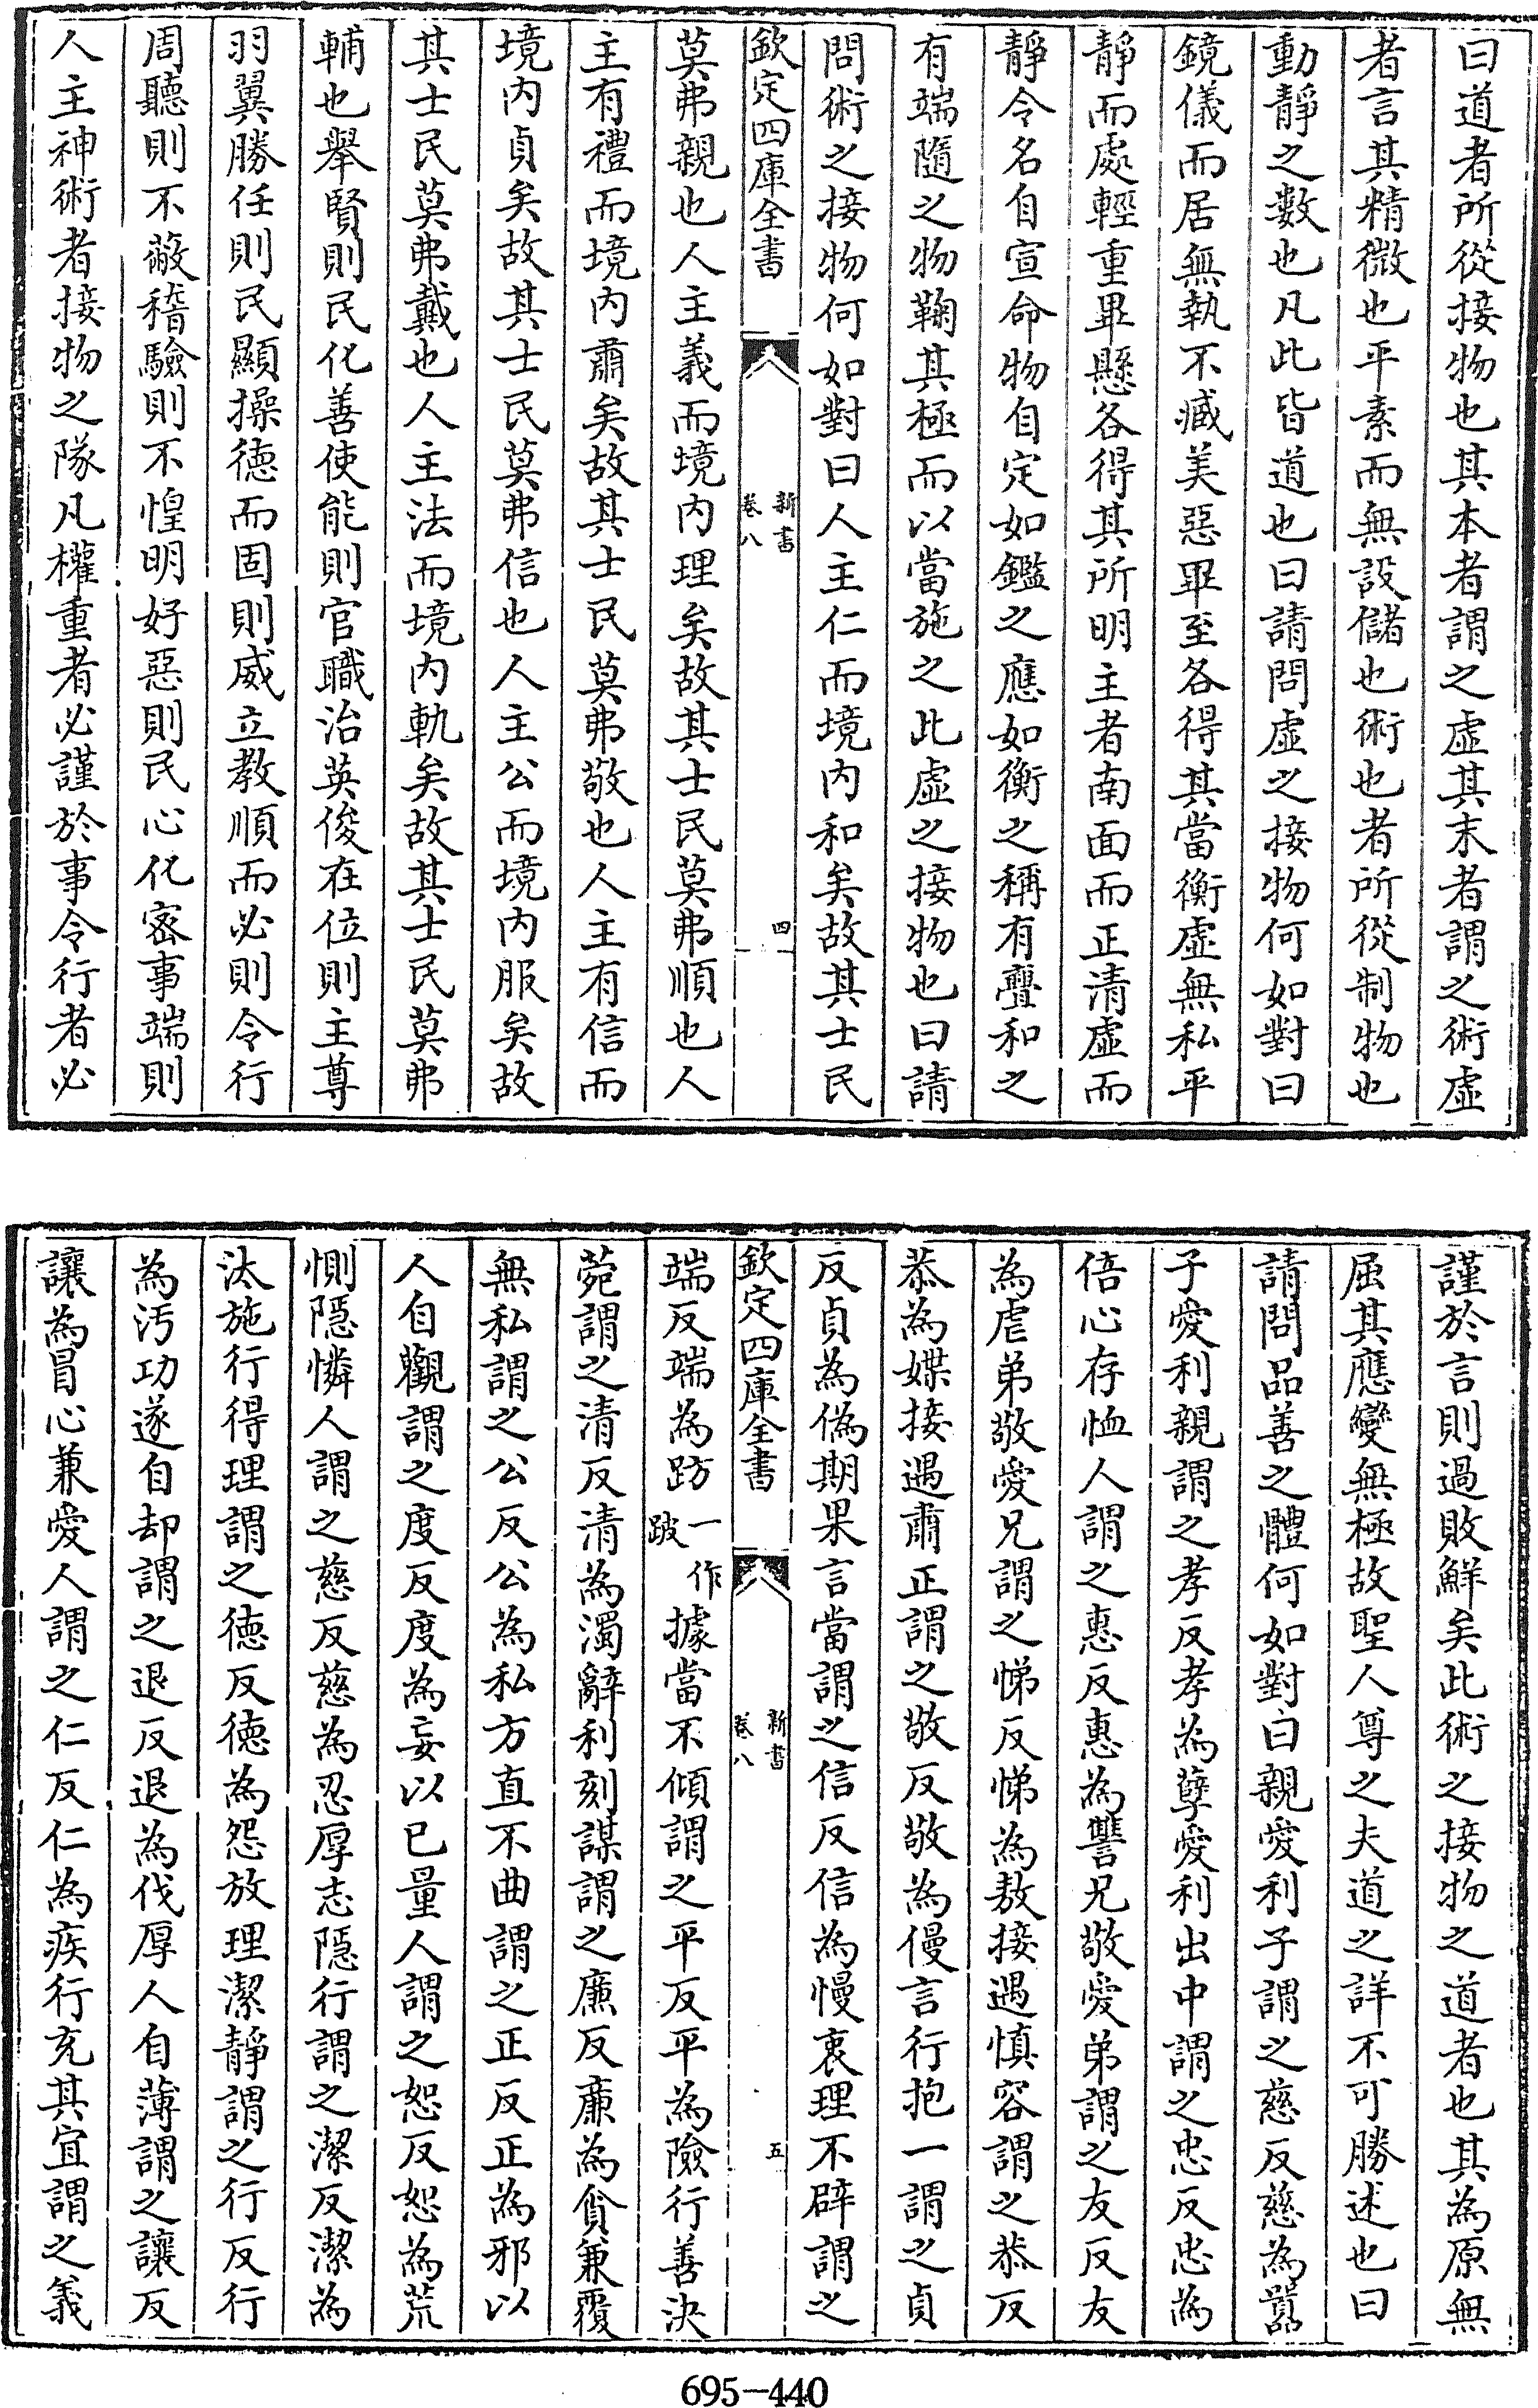 曰道者所從接物也其本者謂之虛其末者謂之術虛
者言其精微也平素而無設儲也術也者所從制物也
動靜之數也凡此皆道也曰請問虛之接物何如對曰
鏡儀而居無執不臧美惡畢至各得其當衡虛無私平
靜而處輕重畢懸各得其所明主者南面而正清虛而
靜令名自宣命物自定如鑑之應如衡之稱有舋和之
有端隨之物鞠其極而以當施之此虛之接物也曰請
問術之接物何如對曰人主仁而境內和矣故其士民
欽定四庫全書
新書
卷八
四
莫弗親也人主義而境內理矣故其士民莫弗順也人
主有禮而境內肅矣故其士民莫弗敬也人主有信而
境內貞矣故其士民莫弗信也人主公而境內服矣故
其士民莫弗戴也人主法而境內軌矣故其士民莫弗
輔也舉賢則民化善使能則官職治英俊在位則主尊
羽翼勝任則民顯操德而固則威立教順而必則令行
周聽則不蔽稽驗則不惶明好惡則民心化密事端則
人主神術者接物之隊凡權重者必謹於事令行者必
謹於言則過敗鮮矣此術之接物之道者也其為原無
屈其應變無極故聖人尊之夫道之詳不可勝述也曰
請問品善之體何如對曰親愛利子謂之慈反慈為嚚
子愛利親謂之孝反孝為孽愛利出中謂之忠反忠為
倍心存恤人謂之惠反惠為讐兄敬愛弟謂之友反友
為虐弟敬愛兄謂之悌反悌為敖接遇慎容謂之恭反
恭為媟接遇肅正謂之敬反敬為僈言行抱一謂之貞
反貞為偽期果言當謂之信反信為慢衷理不辟謂之
欽定四庫全書
新書
卷八
五
端反端為跘一作跛據當不傾謂之平反平為險行善決
菀謂之清反清為濁辭利刻謀謂之廉反廉為貪兼覆
無私謂之公反公為私方直不曲謂之正反正為邪以
人自觀謂之度反度為妄以已量人謂之恕反恕為荒
惻隱憐人謂之慈反慈為忍厚志隱行謂之潔反潔為
汰施行得理謂之德反德為怨放理潔靜謂之行反行
為汚功遂自却謂之退反退為伐厚人自薄謂之讓反
讓為冒心兼愛人謂之仁反仁為疾行充其宜謂之義
695-440